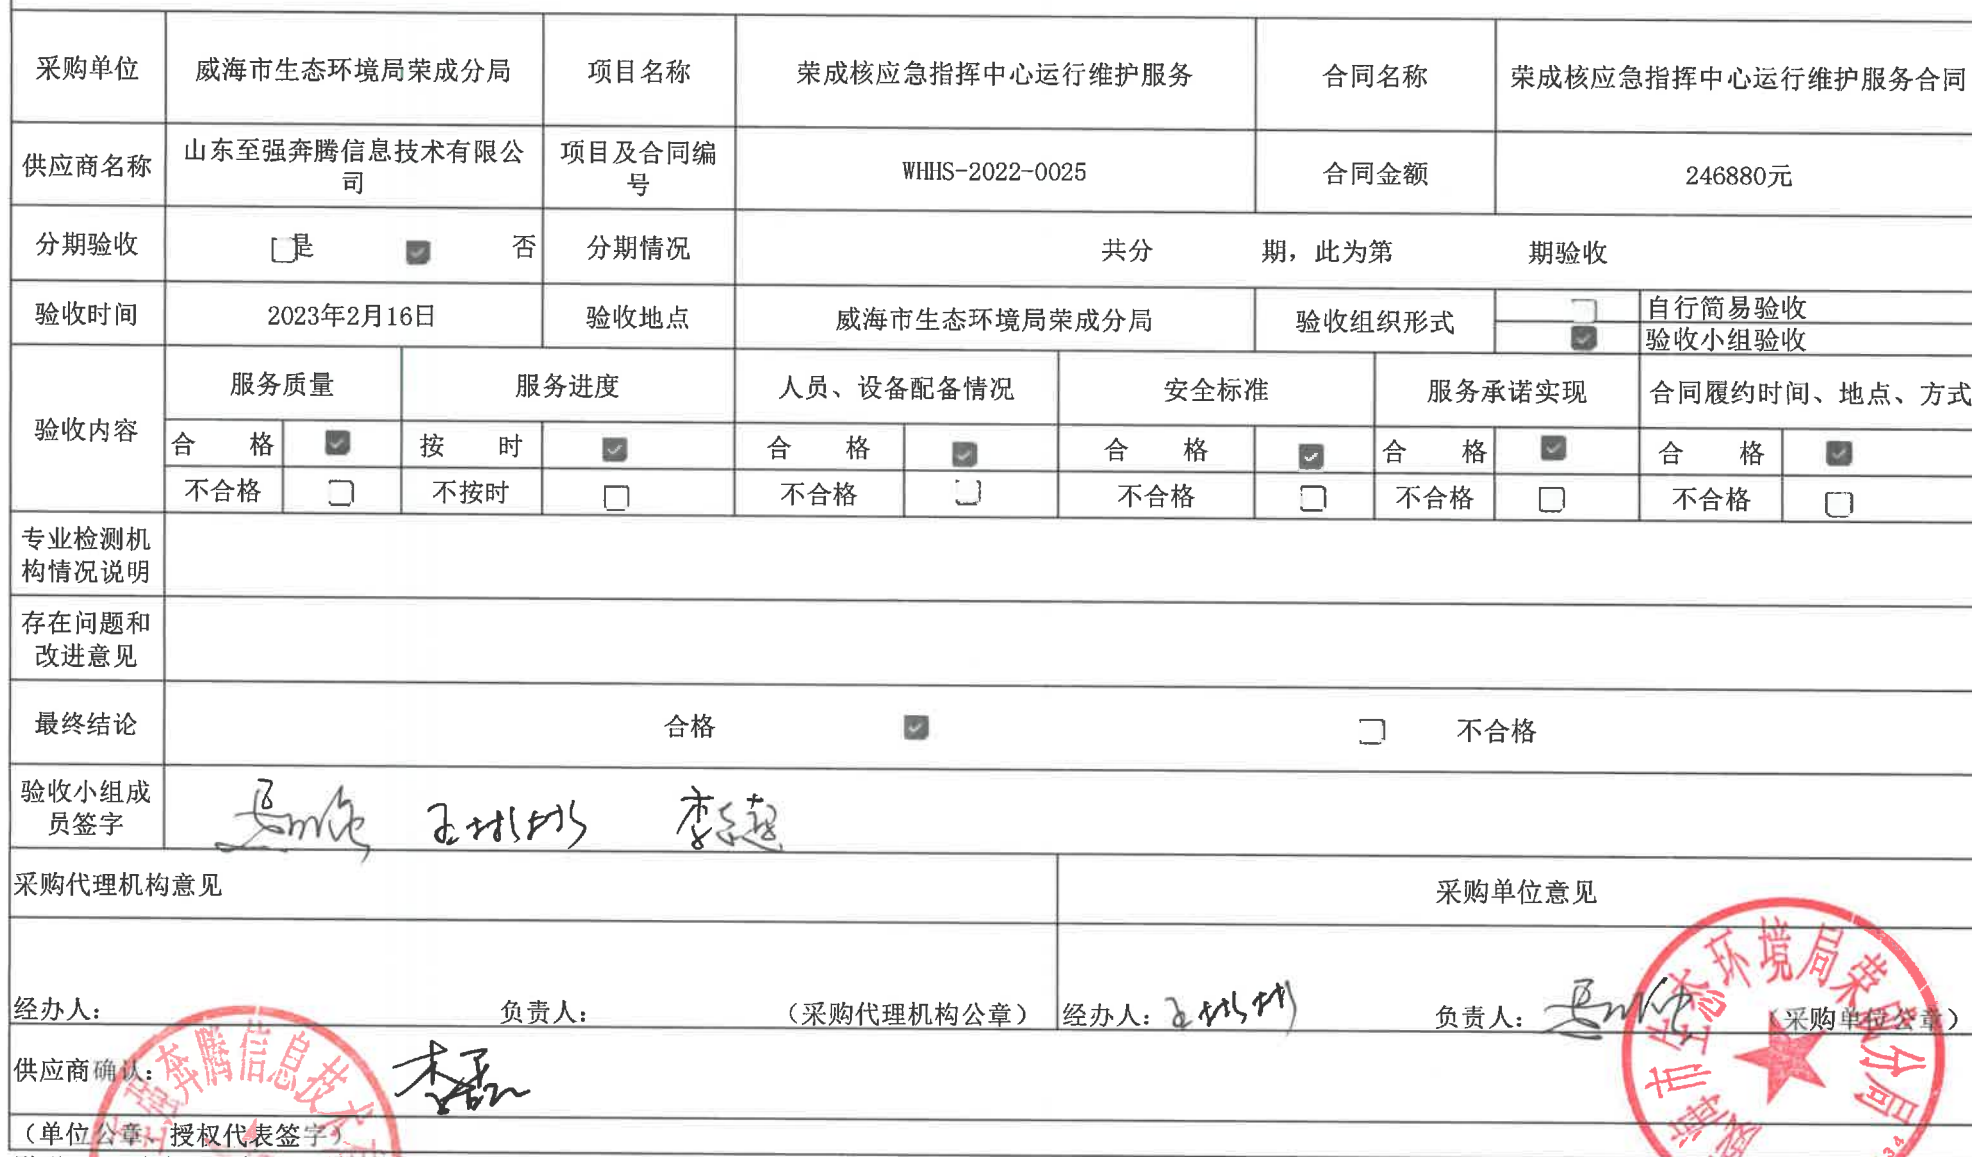 采购单位 威海市生态环境局荣成分局 项目名称 荣成核应急指挥中心运行维护服务 合同名称 荣成核应急指挥中心运行维护服务合同
供应商名称 山东至强奔腾信息技术有限公司 项目及合同编号 WHHS-2022-0025 合同金额 246880元
分期验收 是 否 分期情况 共分 期，此为第 期验收
验收时间 2023年2月16日 验收地点 威海市生态环境局荣成分局 验收组织形式 自行简易验收
验收小组验收
验收内容 服务质量 服务进度 人员、设备配备情况 安全标准 服务承诺实现 合同履约时间、地点、方式
合 格 按 时 合 格 合 格 合 格 合 格
不合格 不按时 不合格 不合格 不合格 不合格
专业检测机构情况说明
存在问题和改进意见
最终结论 合格 不合格
验收小组成员签字 王彬彬
采购代理机构意见 采购单位意见
经办人： 负责人： （采购代理机构公章） 经办人：王彬彬 负责人： （采购单位公章）
供应商确认：
（单位公章、授权代表签字）
强奔腾信息技术
威海市生态环境局荣成分局